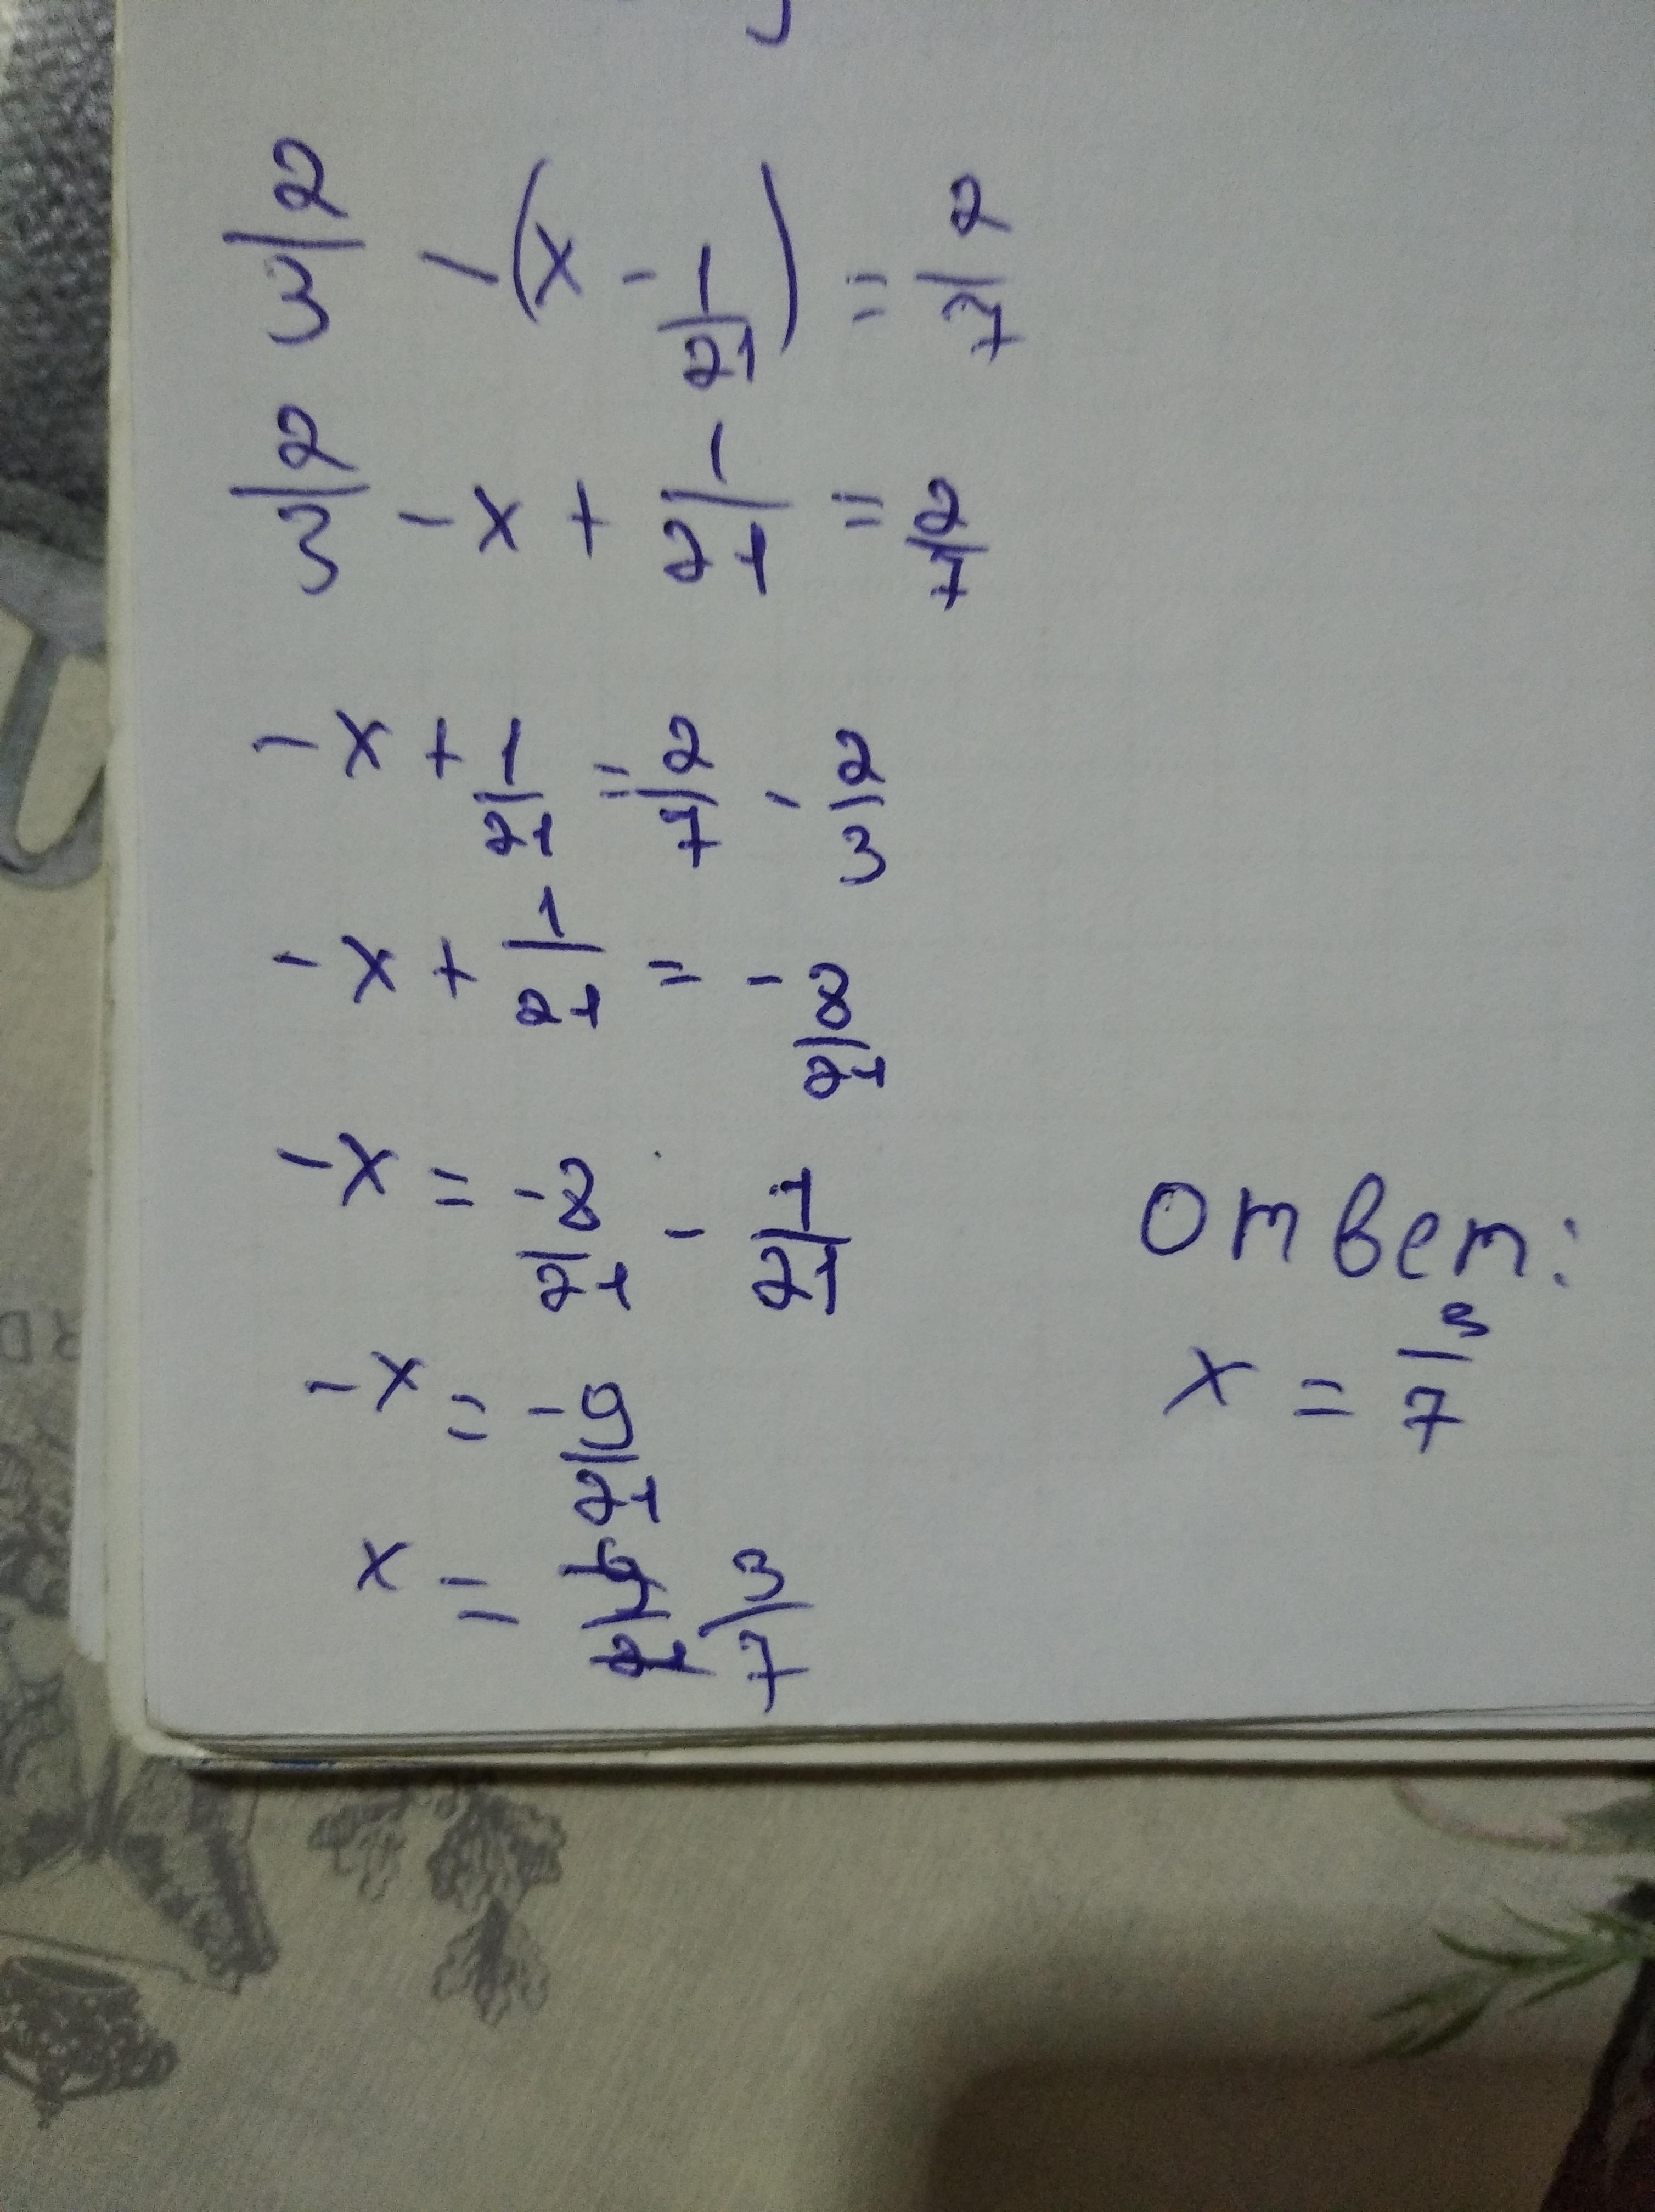 2/3 - (x - 1/21) = 2/7
2/3 - x + 1/21 = 2/7
-x + 1/21 = 2/7 - 2/3
-x + 1/21 = - 8/21
-x = -8/21 - 1/21
-x = -9/21
x = 3/7
Ответ:
x = 3/7